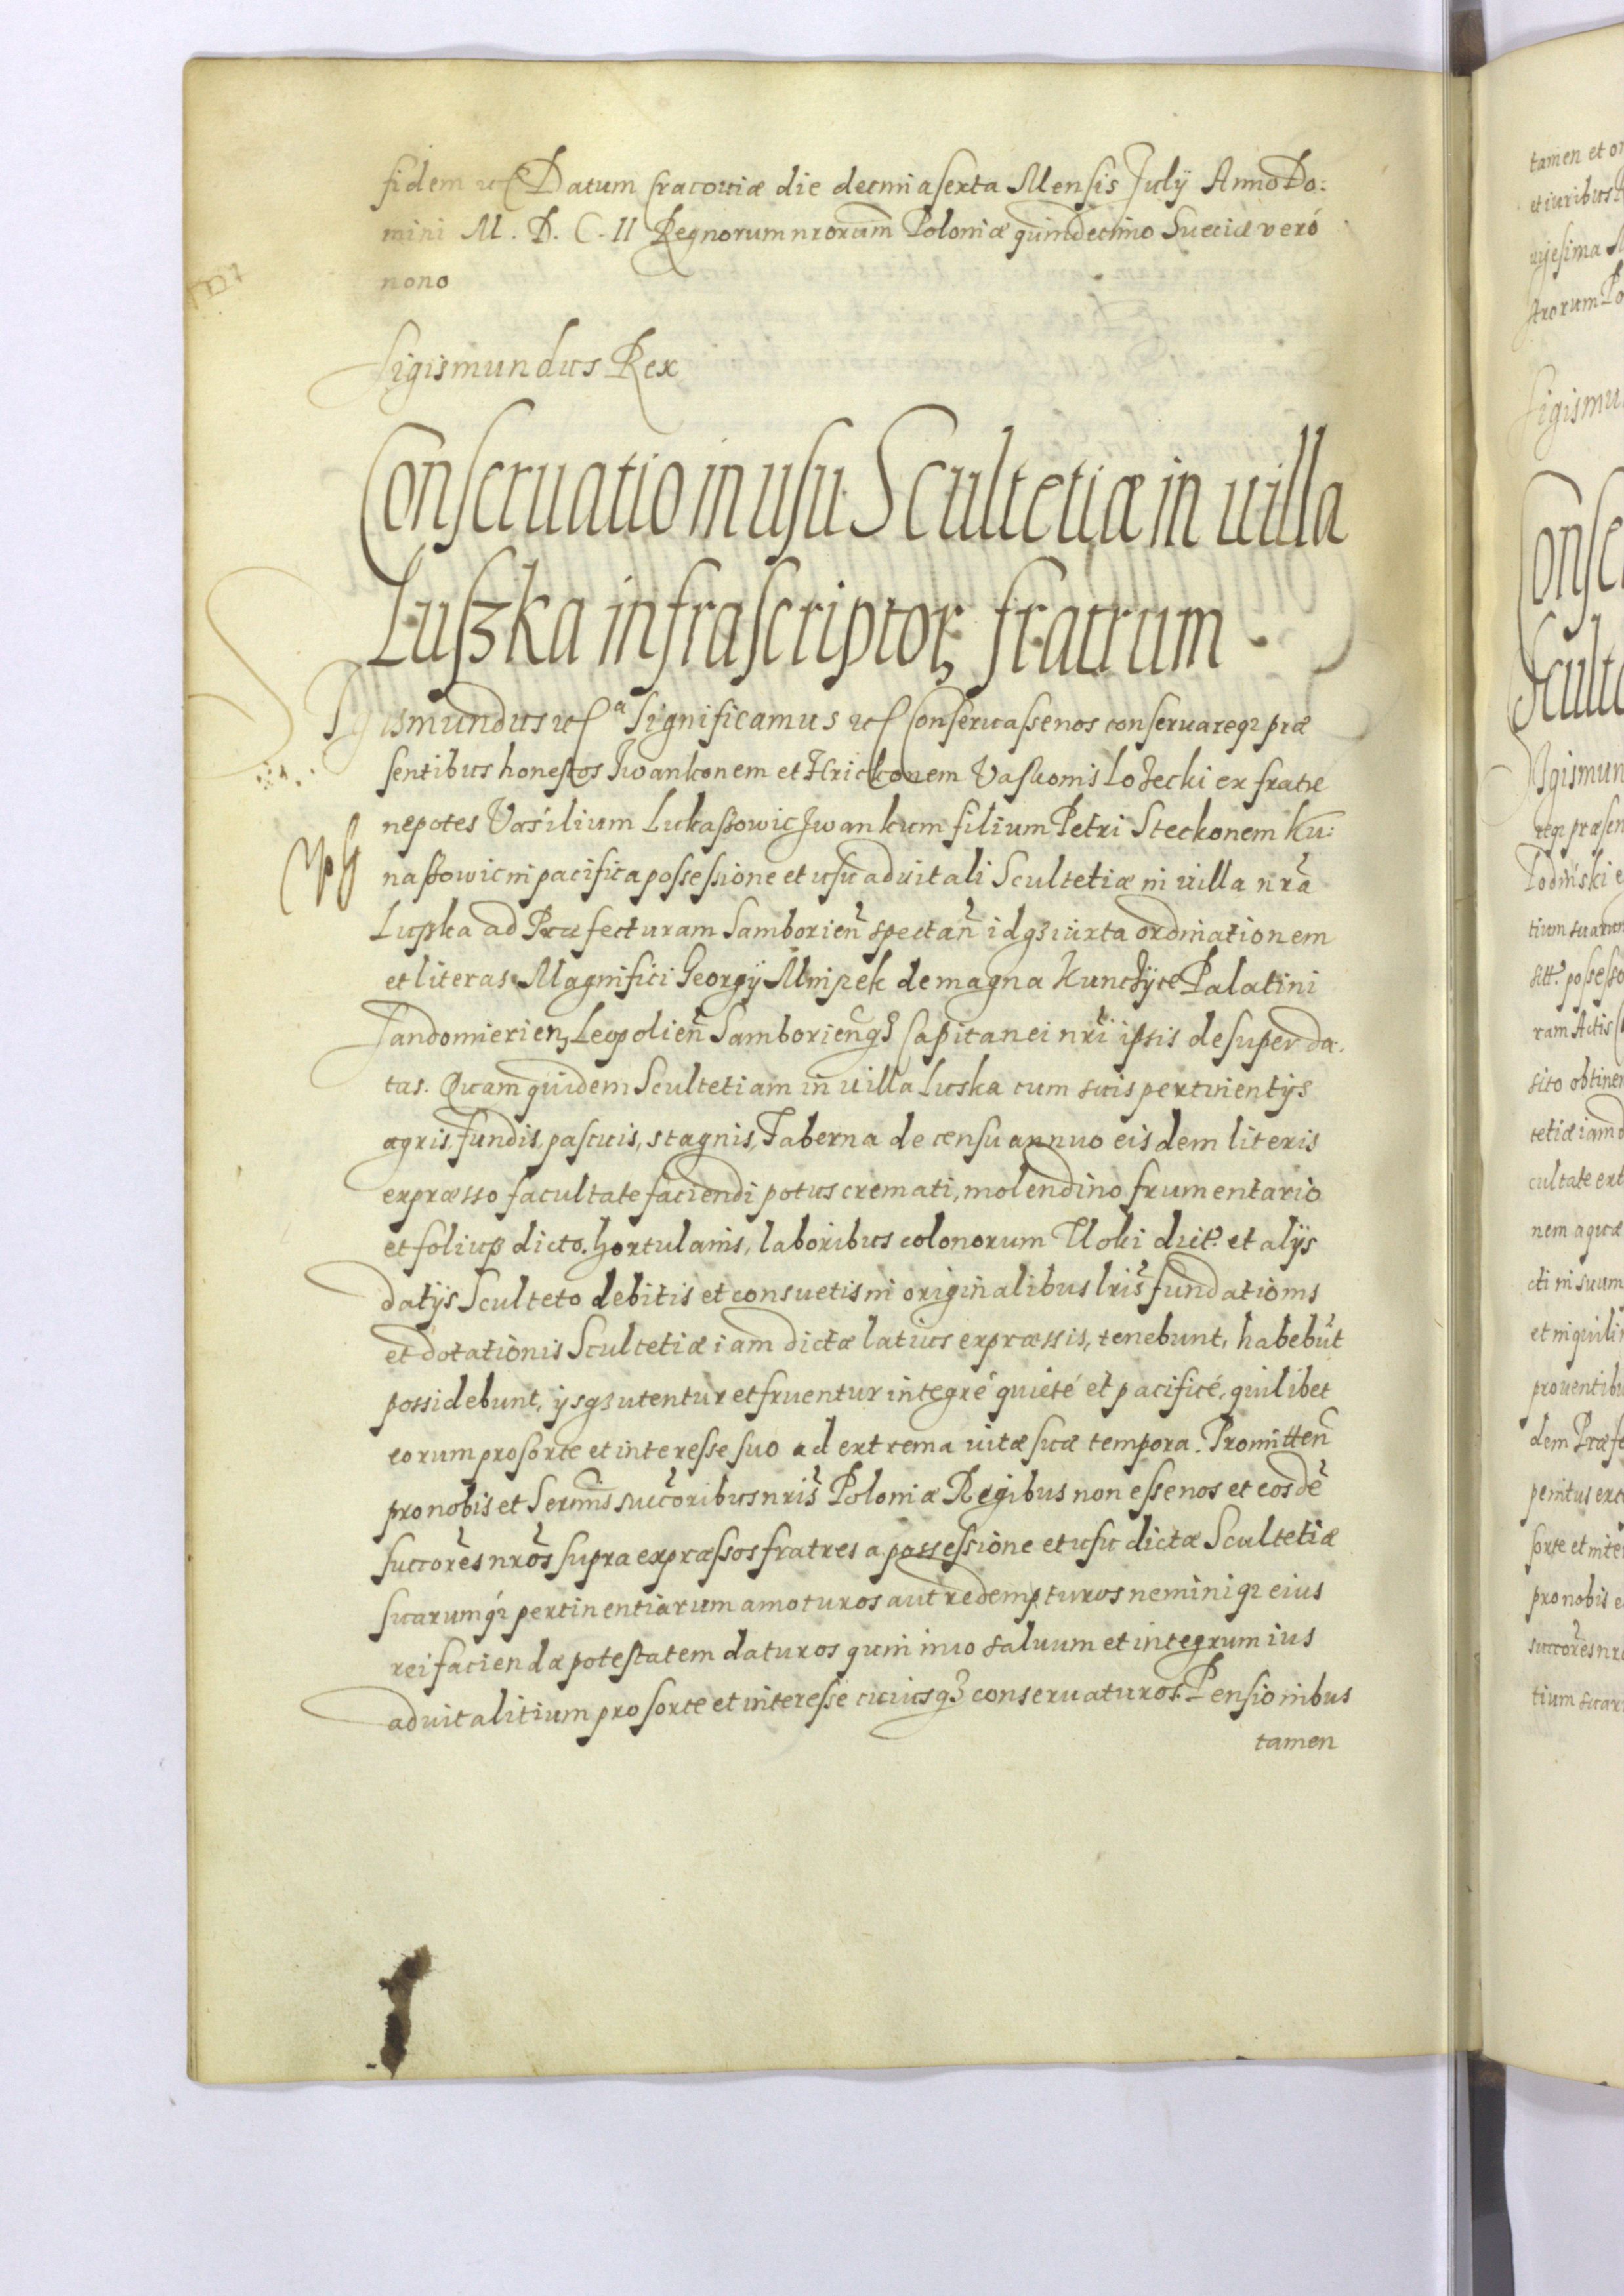 fidem etc Datum Cracouiæ die decimasexta Mensis Julÿ Anno Do:
mini M. D. C. II Regnorum nrorum Poloniæ quindecimo Sueciæ veró
nono
Sigismundus Rex
Conseruatio in usu Scultetiæ in uilla
Luszka infrascriptor, fratrum
Sigismundus etc Significamus etc Conseruasse nos conseruareqȝ præ
sentibus honestos Jwankonem et Hrickonem Vaskonis ex fratre
nepotes Vasilium Lukaszowic Jwankum filium Petri Steckonem Ku:
naszowic in pacifica possessione et usu aduitali Scultetiæ in uilla nrã
Luszka ad Præfecturam Samborien̄ spectan̄ idqȝ iuxta ordinationem
et literas Magnifici Georgÿ Mnipek de magna Kunczÿce Palatini
Sandomierien, Leopolien̄ Samborien̄qȝ Capitanei nrĩ ipsis desuper da.
tas. Quam quidem Scultetiam in uilla Luska cum suis pertinentÿs
agris, fundis, pascuis, stagnis, Taberna de censu annuo eisdem literis
expræsso facultate faciendi potus cremati, molendino frumentario
et folusz dicto. hortulanis, laboribus colonorum Tloki dict. et alÿs
datÿs Sculteto debitis et consuetis in originalibus lris̃ fundationis
et dotationis Scultetiæ iam dictæ latius expræssis, tenebunt, habebūt
possidebunt, ÿsqȝ utentur et fruentur integré quieté et pacificé, quilibet
eorum pro sorte et interesse suo ad extrema uitæ suæ tempora. Promitten̄
pro nobis et Sermis succoribus nris̃ Poloniæ Regibus non esse nos et eosdē
succores nros̃ supra expræssos fratres a possessione et usu dictæ Scultetiæ
suarumqȝ pertinentiarum amoturos aut redempturos neminiqȝ eius
rei faciendæ potestatem daturos quin imo saluum et integrum ius
aduitalitium pro sorte et interesse cuiusqȝ conseruaturos. Pensionibus
tamen